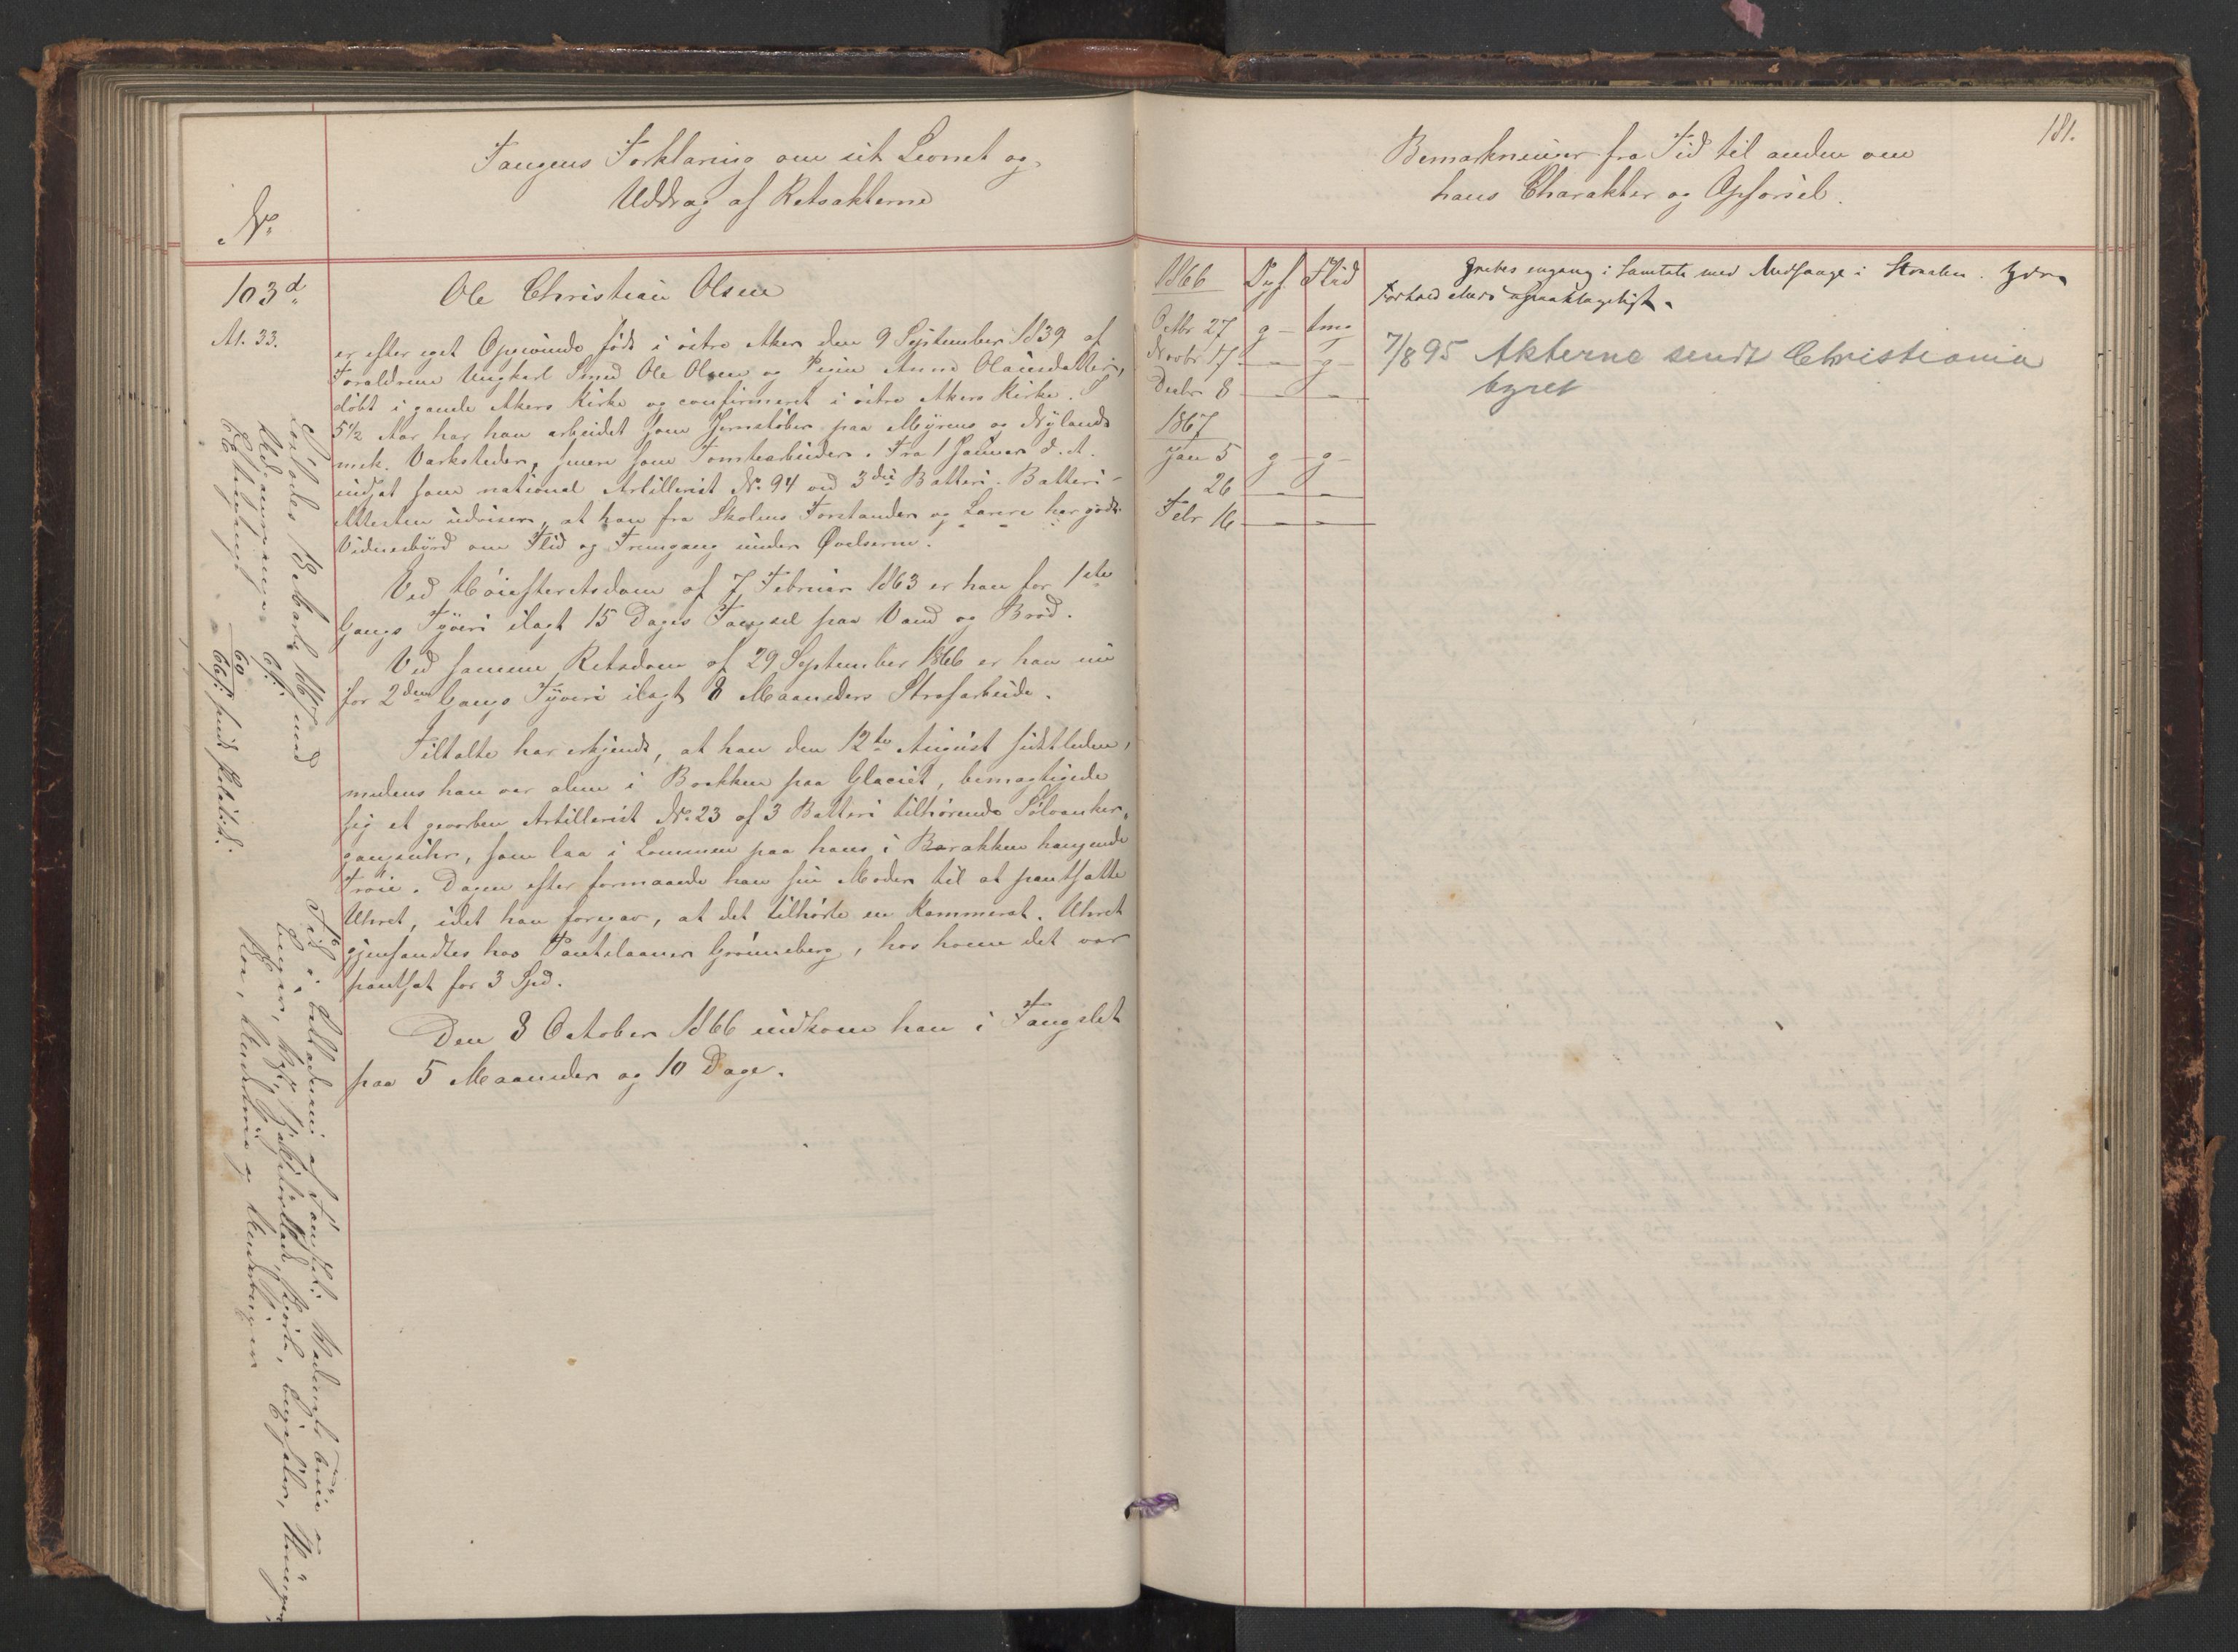 Fangens Forklaring om sit Levnet og
Uddrag af Retsakterne
No
103d
A. 33.
Ole Christian Olsen
er efter eget Opgivende født i østre Aker den 9 September 1839 af
Forældrene Ungkarl Smed Ole Olsen og Pigen Anne Olausdatter,
døbt i gamle Akers Kirke og confirmeret i østre Akers Kirke. I
5½ Aar har han arbeidet som Jernstøber paa Myrens og Nylands
mek. Værksteder, senere som Tomtearbeider. Fra 1 Januar d. A.
indsat som national Artillerist No. 94 ved 3die Batteri. Batteri-
Attesten udviser, at han fra Skolens Forstander og Lærere har godt
Vidnesbyrd om Flid og Fremgang under Øvelserne.
Ved Høiesteretsdom af 7 Februar 1863 er han for 1ste
Gangs Tyveri ilagt 15 Dages Fængsel paa Vand og Brød.
Ved samme Retsdom af 29 September 1866 er han nu
for 2den Gangs Tyveri ilagt 8 Maaneders Strafarbeide.
Tiltalte har erkjendt, at han den 12te August sidstleden,
medens han var alene i Brakken paa Glaciet, bemægtigede
sig et hvervet Artillerist No. 23 af 3 Batteri tilhørende Sølvanker-
gangsuhr, som laa i Lommen paa hans i Barakken hængende
Trøie. Dagen efter formaaede han sin Moder til at pantsætte
Uhret, idet han foregav, at det tilhørte en Kammerat. Uhret
gjenfandtes hos Pantelaaner Grønneberg, hos hvem det var
pantsat for 3 Spd.
Den 8 October 1866 indkom han i Fængslet
paa 5 Maaneder og 10 Dage.
Løslades 18 Marts 1867 med
Bemærkninger fra Tid til anden om
hans Charakter og Opførsel.
181.
1866 Opf. Flid
Octbr 27 g – tmg
Novbr 17 – – g –
Decbr 8 – –
1867
Jan 5 g – g –
26 – –
Febr 16 – –
Grebes engang i Samtale med Medfange i Straalen. Hans
Forhold ellers upaaklageligt.
7/8 95 Akterne sendt Christiania
byret